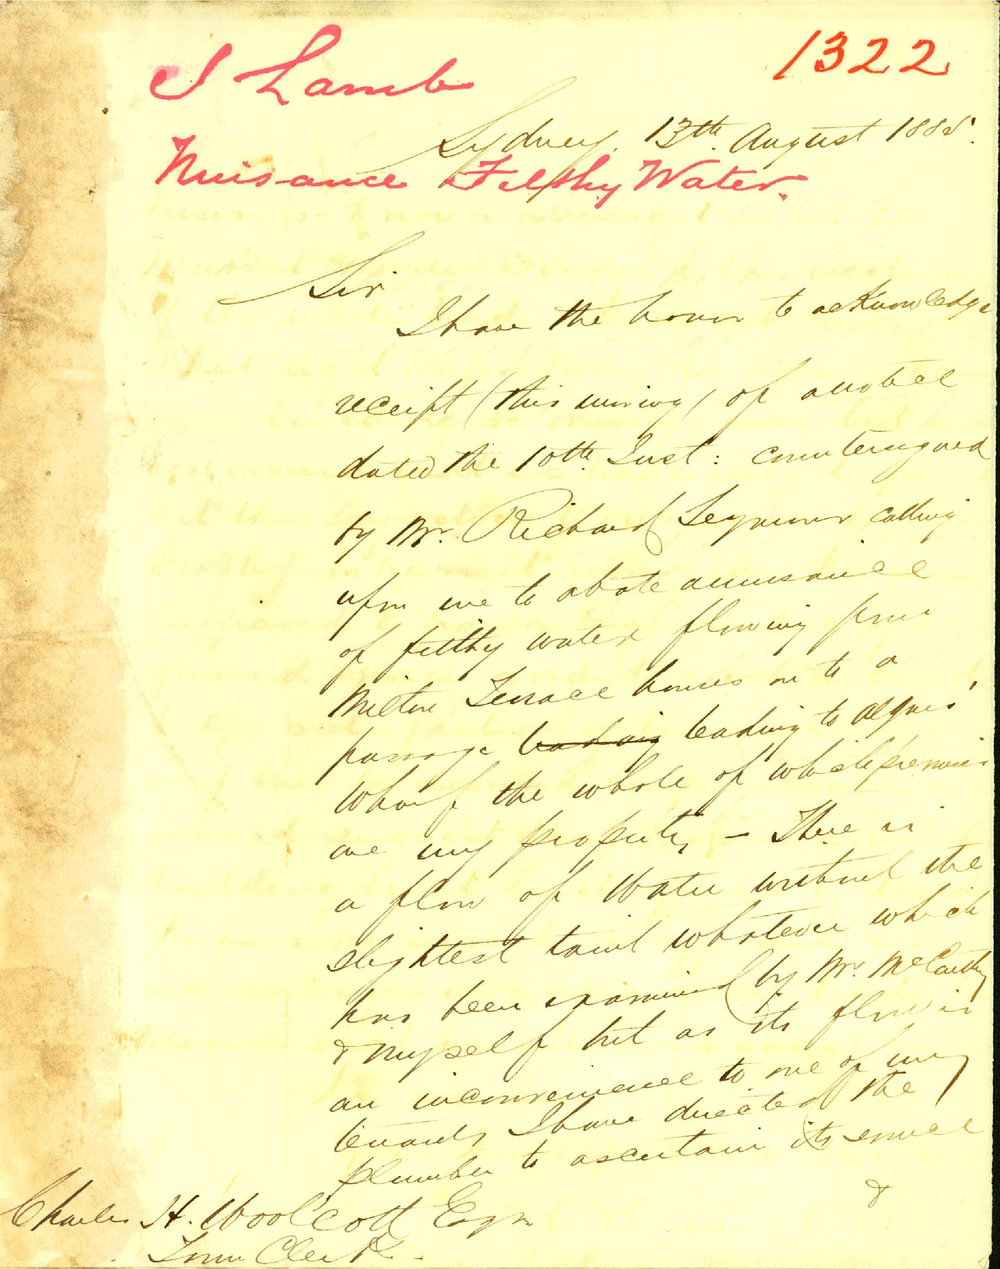 1322
J Lamb
Sydney. 13th August 188
Nuisance Filthy Water.
Sir
I have the honor to acknowledge
receipt (this morning) of a notice
dated the 10th Inst: countersigned
by Mr. Richard Seymour calling
upon me to abate a nuisance
of filthy water flowing from
Milton Terrace houses on to a
passage leading leading to
Wharf the whole of which premises
are my property, – There is
a flow of Water without the
slightest taint whatever which
has been examined by Mr. McCarthy
& myself but as its flow is
an inconvenience to one of my
tenants I have directed the
plumber to ascertain its source
&
Charles H. Woolcott Esqr
Town Clerk.